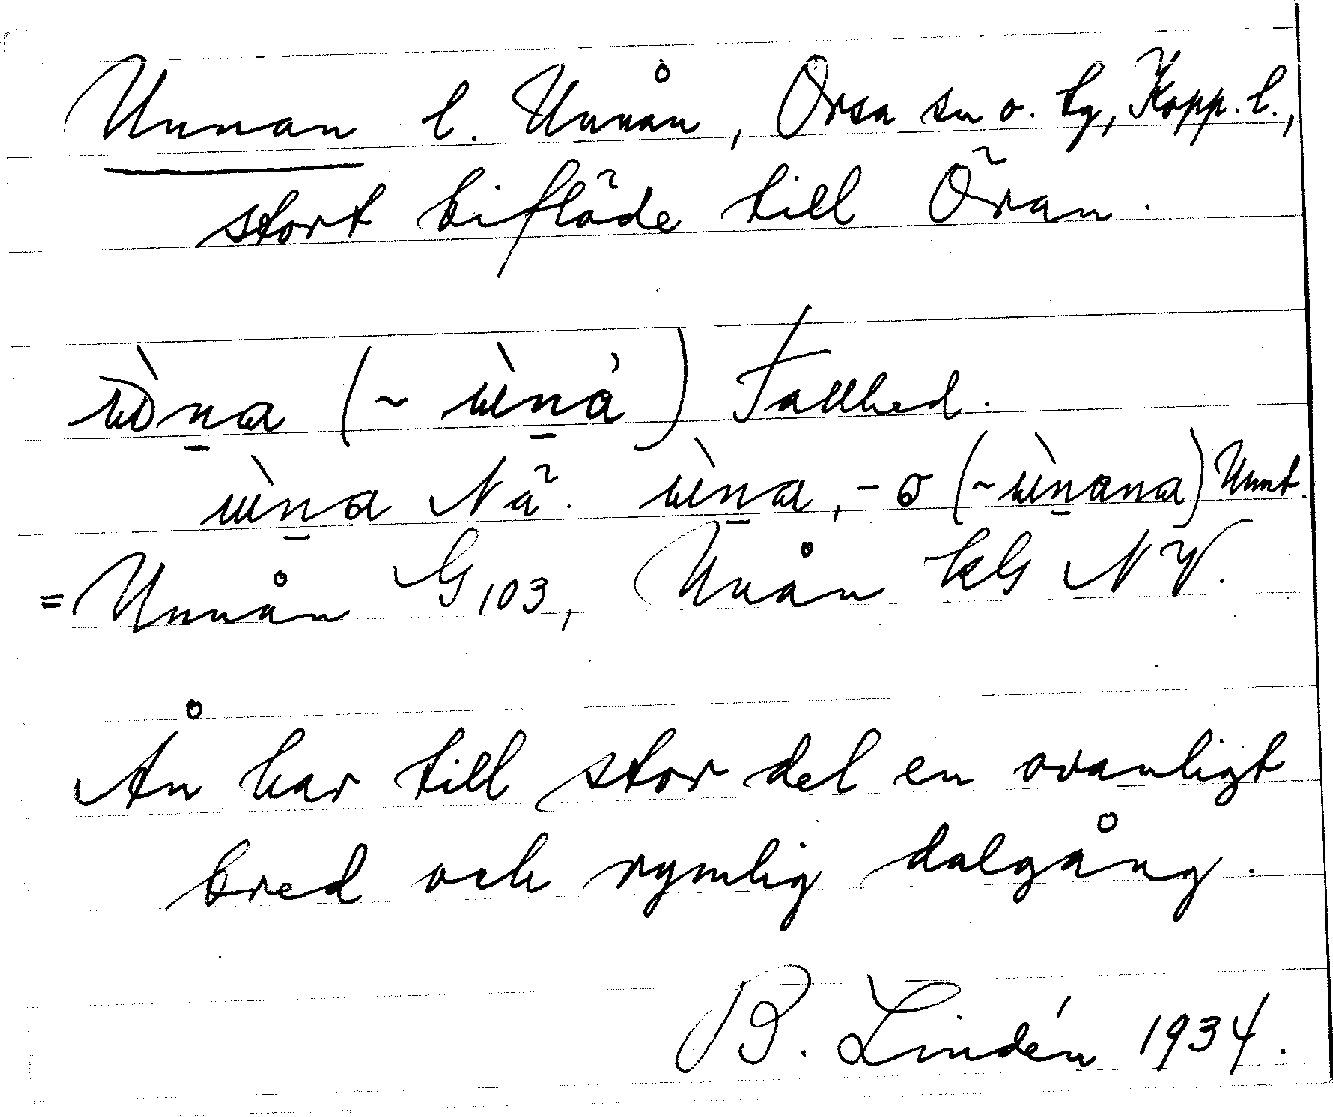 Unnan l. Unnån, Orsa sn o. tg, Kopp. l.,
stort biflöde till Öran.
(~ ) Fallhed.
Nä.
= Unnån G 103, Unån kG NV.
Ån har till stor del en ovanligt
bred och rymlig dalgång.
B. Lindén 1934.